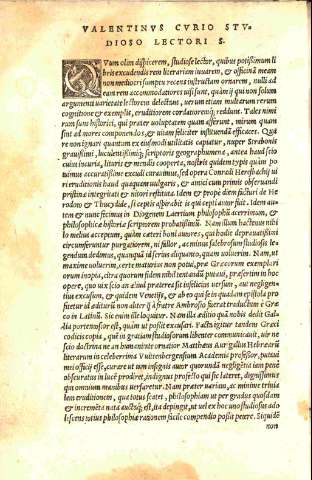 VALENTINVS CVRIO STV
DIOSO LECTORI S.
QVum olim dispicerem, studiose lector, quibus potissimum li
bris excudendis rem literariam iuuarem, & officinã meam
non mediocri sumptu recens instructam ornarem, nulli ad
eam rem accommodatiores uisi sunt, quàm ij qui non solum
argumenti uarietate lectorem delectant, uerum etiam multarum rerum
cognitione & exemplis, eruditiorem cordatioremq́; reddunt. Tales nimi
rum sunt historici, qui præter uoluptatem quam afferunt, mirum quam
sint ad mores componendos, & uitam feliciter instituendã efficaces. Quã
re non ignari quantum ex eiusmodi utilitatis capiatur, nuper Strabonis
grauissimi, luculentissimiq́; scriptoris geographumena, antea haud scio
cuius incuria, lituris & mendis cooperta, nostris quidem typis quàm po
tuimus accuratissime excudi curauimus, sed opera Conradi Heresbachij ui
ri eruditionis haud quaquam uulgaris, & amici cum primis obseruandi
pristinæ integritati & nitori restituta. Idem & propè diem facturi de He
rodoto & Thucydide, si cœptis aspirabit is qui cœpti autor fuit. Idem au
tem & nunc fecimus in Diogenem Laertium philosophũ acerrimum, &
philosophicæ historiæ scriptorem probatissimũ. Nam illum hactenus nihi
lo melius acceptum, quàm cæteri boni autores, qui hodie deprauatissimi
circumferuntur purgatiorem, ni fallor, ac minus salebrosum studiosis le-
gendum dedimus, quanquã id serius aliquanto, quam uoluerim. Nam, ut
maxime uoluerim, certe maturius non potui, præ Græcorum exemplari
orum inopia, citra quorum fidem nihil tentandũ putaui, præsertim in hoc
opere, quo uix scio an aliud præterea sit infelicius uersum, aut negligen-
tius excusum, & quidem Venetijs, & ab eo qui se in quadam epistola pro
fitetur id æditurũ non aliter ꝗ̃ à fratre Ambrosio fuerat traductum è Græ
co in Latinũ. Sic enim ille loquitur. Nam illa æditio quã nobis dedit Gal-
lia portentosior est, quàm ut possit excusari. Factũ igitur tandem Græci
codicis copia, qui in gratiam studiosorum libenter communicauit, uir ne
scio doctrina ne an humanitate ornatior Matthæus Aurigallus Hebræarũ
literarum in celeberrima Vuittenbergensium Academia professor, putaui
mei officij esse, curare ut tam insignis autor quorundã negligẽtia iam penè
obscuratus in lucẽ prodiret, indignus profectò qui sic lateret, dignissimus
qui omnium manibus uersaretur. Nam præter uariam, ac minime triuia
lem eruditionem, qua totus scatet, philosophiam ut per gradus quosdam
& incremẽta nata auctaq́; est, ita depingit, ut uel ex hoc uno studiosus ado
lescens totius philosophiæ rationem facili compendio possit petere. Siquidẽ
non